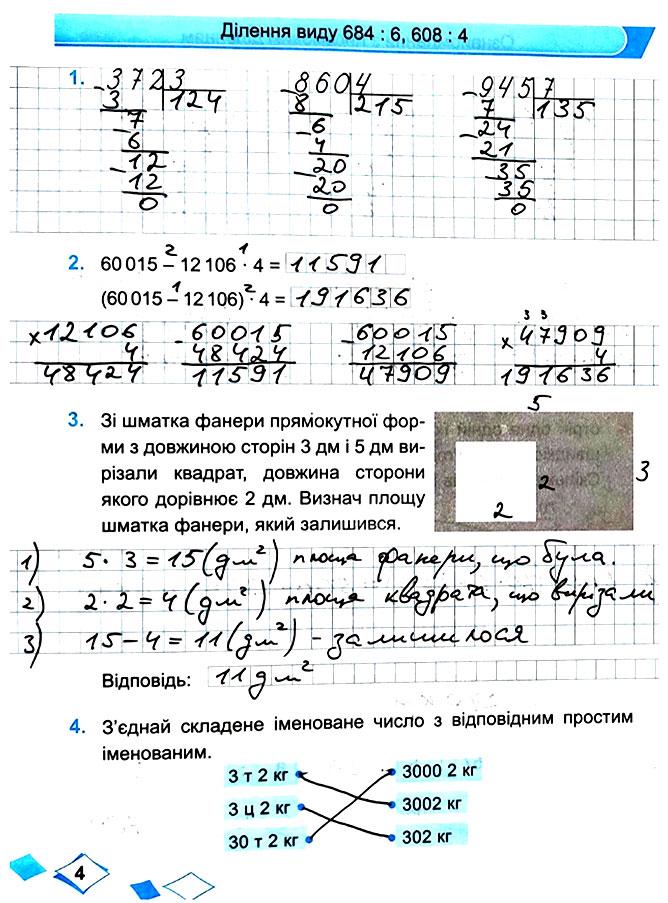 Ділення виду 684 : 6, 608 : 4
1.
372 3 860 4 945 7
3 124 8 215 7 135
7 6 24
6 4 21
12 20 35
12 20 35
0 0 0
2 1
2. 60 015 – 12 106 · 4 = 11591
1 2
(60 015 – 12 106) · 4 = 191636
3 3
×12106 -60015 -60015 ×47909
4 48424 12106 4
48424 11591 47909 191636
5
3. Зі шматка фанери прямокутної фор-
ми з довжиною сторін 3 дм і 5 дм ви-
різали квадрат, довжина сторони
якого дорівнює 2 дм. Визнач площу
шматка фанери, який залишився.
3
2
2
1) 5 · 3 = 15 (дм²) площа фанери, що була.
2) 2 · 2 = 4 (дм²) площа квадрата, що вирізали
3) 15 – 4 = 11 (дм²) - залишилося
Відповідь: 11 дм²
4. З’єднай складене іменоване число з відповідним простим
іменованим.
3 т 2 кг 3000 2 кг
3 ц 2 кг 3002 кг
30 т 2 кг 302 кг
4